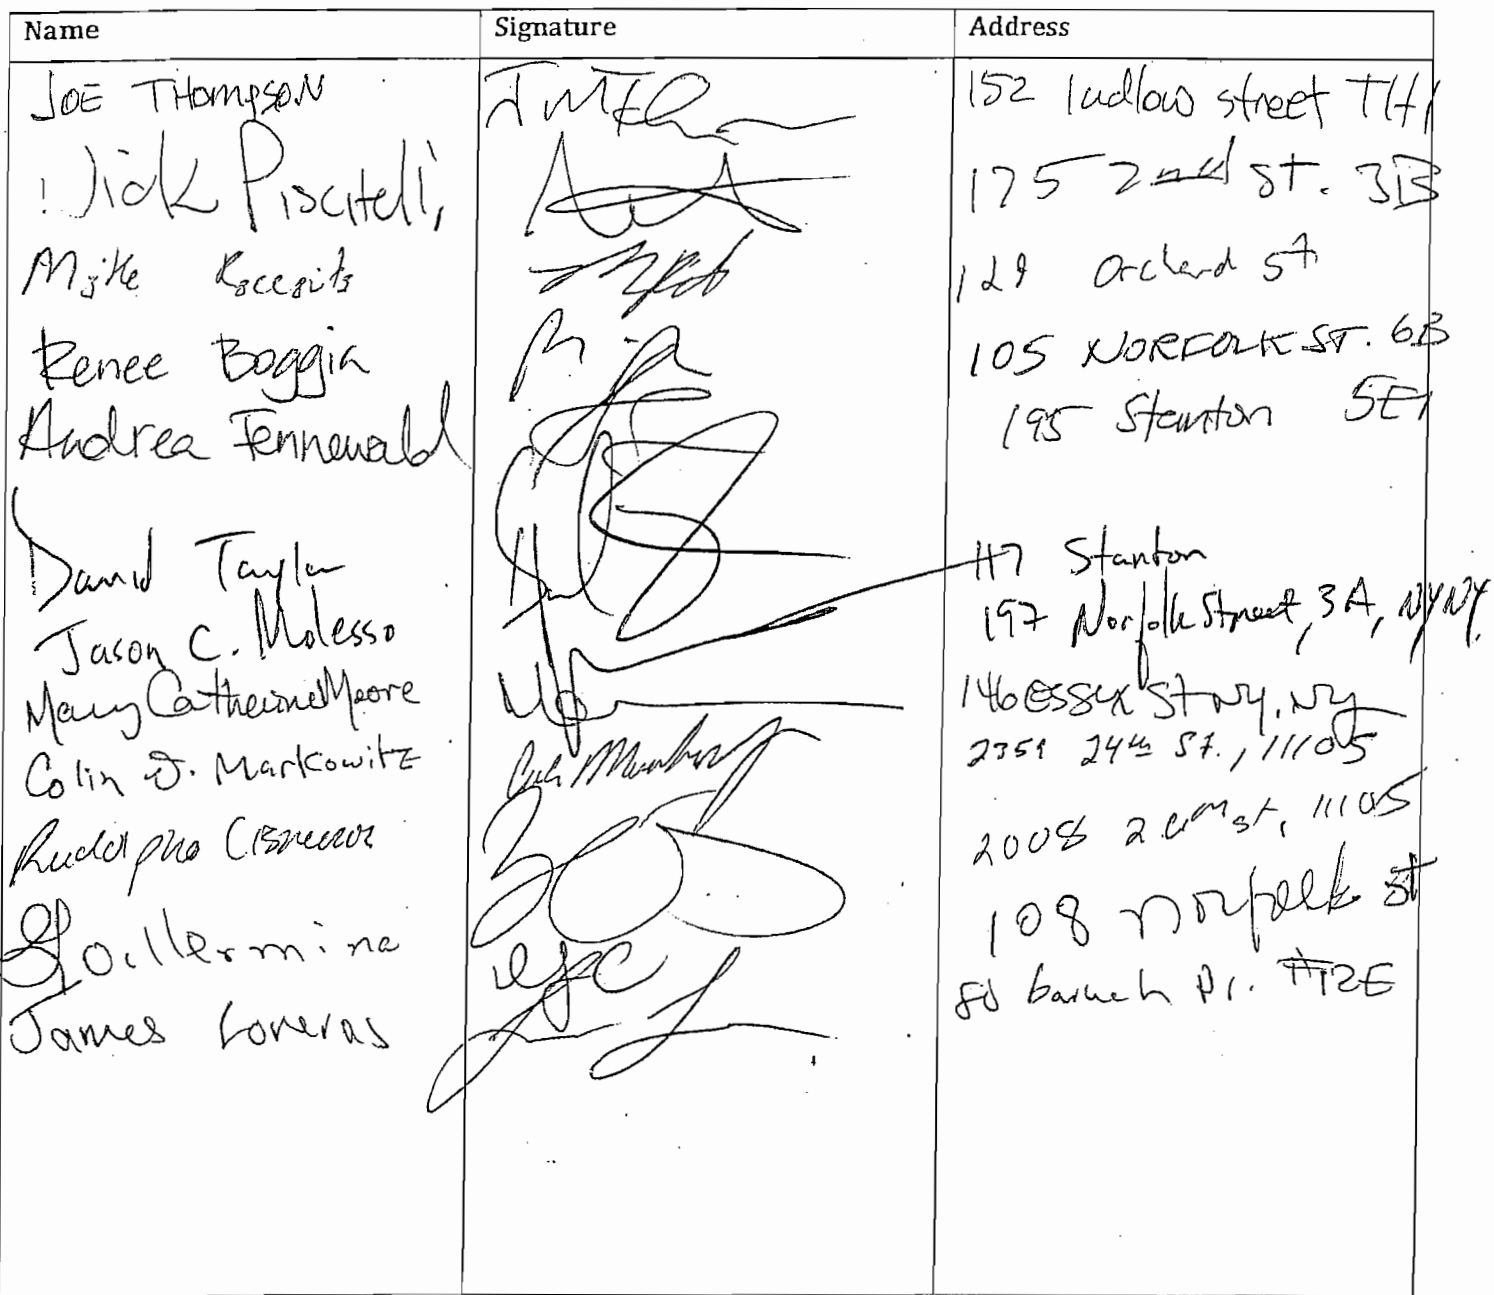 Name Signature Address
JOE THOMPSON 152 ludlow street TH1
Piscitelli 175 2nd st. 3B
Mike Orchard st
Renee Boggia 105 NORFOLK ST. 6B
Andrea Fennewald 195 Stanton 5E1
David Taylor 117 Stanton
Jason C. Molesso 197 Norfolk Street, 3A, NY NY.
Mary Catherine Moore 146 ESSEX St NY, NY
Colin D. Markowitz 2351 24th St., 11105
Rudolpho Cisneros 2008 st, 11105
Guillermina 108 Norfolk st
James baruch Dr. #12E